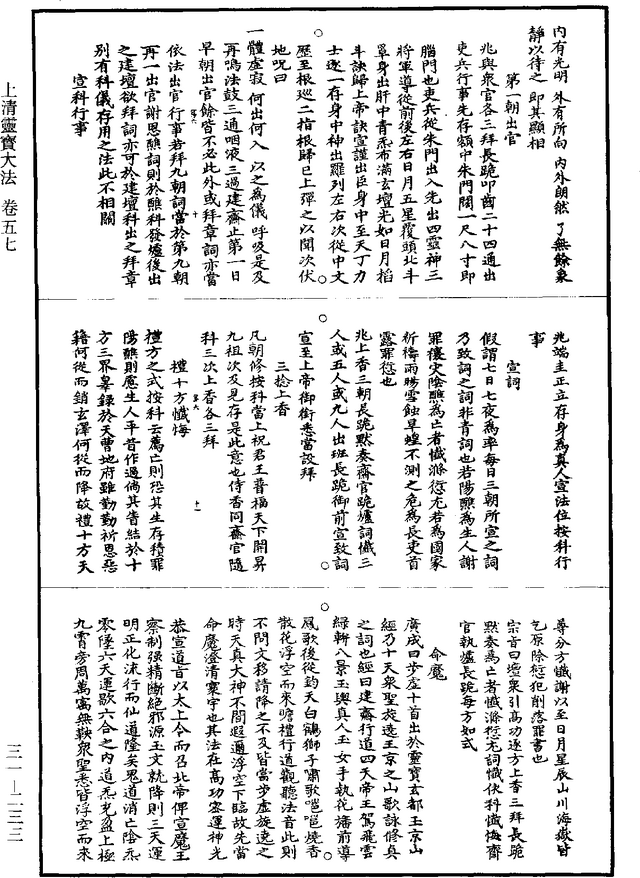 內有光明 外有所向 內外朗然 了無餘象
靜以待之 即其顯相
第一朝出官
兆與衆官各三拜長跪叩齒二十四通出
吏兵行事先存額中朱門闊一尺八寸即
腦門也吏兵從朱門出入先出四靈神三
將軍導從前後左右日月五星覆頭北斗
罩身出肝中青炁布滿玄壇光如日月掐
斗訣歸上帝訣宣護出臣身中至天丁力
士逐一存身中神出羅列左右次從中文
歷至根巡二指根歸巳上彈之以聞次伏
地呪曰
一體虛寂 何出何入 以之為儀 呼吸是及
再鳴法鼓三通咽液三過建齋止第一日
早朝出官餘皆不必此外或拜章詞亦當
依法出官行事若拜九朝詞當於第九朝
再一出官謝恩醮詞則於醮科發爐後出
之建壇欲拜詞亦可於建壇科出之拜章
別有科儀存用之法此不相關
宣科行事
上清靈寶大法 卷五七
兆端圭正立存身為真人宣法位按科行
事
宣詞
假謂七日七夜為率每日三朝所宣之詞
乃致詞之詞非青詞也若陽醮為生人謝
罪禳灾陰醮為亡者懺滌愆尤若為國家
祈禱雨暘雪蝕旱蝗不測之危為長吏首
露罪愆也
兆上香三朝長跪默奏齋官跪爐詞懺三
人或五人或九人出班長跪御前宣致詞
宣至上帝御銜悉當設拜
三捻上香
凡朝修按科當上祝君王普福天下開昇
九祖次及見存是此意也侍香同齋官隨
科三次上香各三拜
禮十方懺悔
禮方之式按科云薦亡則恐其生存積罪
陽醮則慮生人平昔作過倘其眚結於十
方三界辜錄於天曹地府雖勤勤祈恩惡
籍何從而銷玄澤何從而降故禮十方天
尊分方懺謝以至日月星辰山川海嶽皆
乞原除愆犯削落罪書也
宗旨曰壇衆引高功逐方上香三拜長跪
默奏為亡者懺滌愆尤詞懺伏科懺悔齋
官執爐長跪每方如式
命魔
廣成曰步虛十首出於靈寶玄都玉京山
經乃十天衆聖旋遶玉京之山歌詠修真
之詞也經曰建齋行道四天帝王駕飛雲
綠軿八景玉輿真人玉女手執花旛前導
鳳歌後從鈞天白鶴獅子嘯歌嗈嗈燒香
散花浮空而來瞻禮行道觀聽法音此則
不問文移請降之不及皆當步虛旋遶之
時天真大神不間遐邇浮空下臨故先當
命魔澄清寰宇也其法在高功密運神光
恭宣道旨以太上令而召北帝俾宣魔王
察制强精斷絕邪源玉文就降則三天運
明正化流行而仙道隆矣鬼道消亡陰炁
零墜六天運歇六合之內道炁充盈上極
九霄旁周萬寓無鞅衆聖悉皆浮空而來
三一—二三三